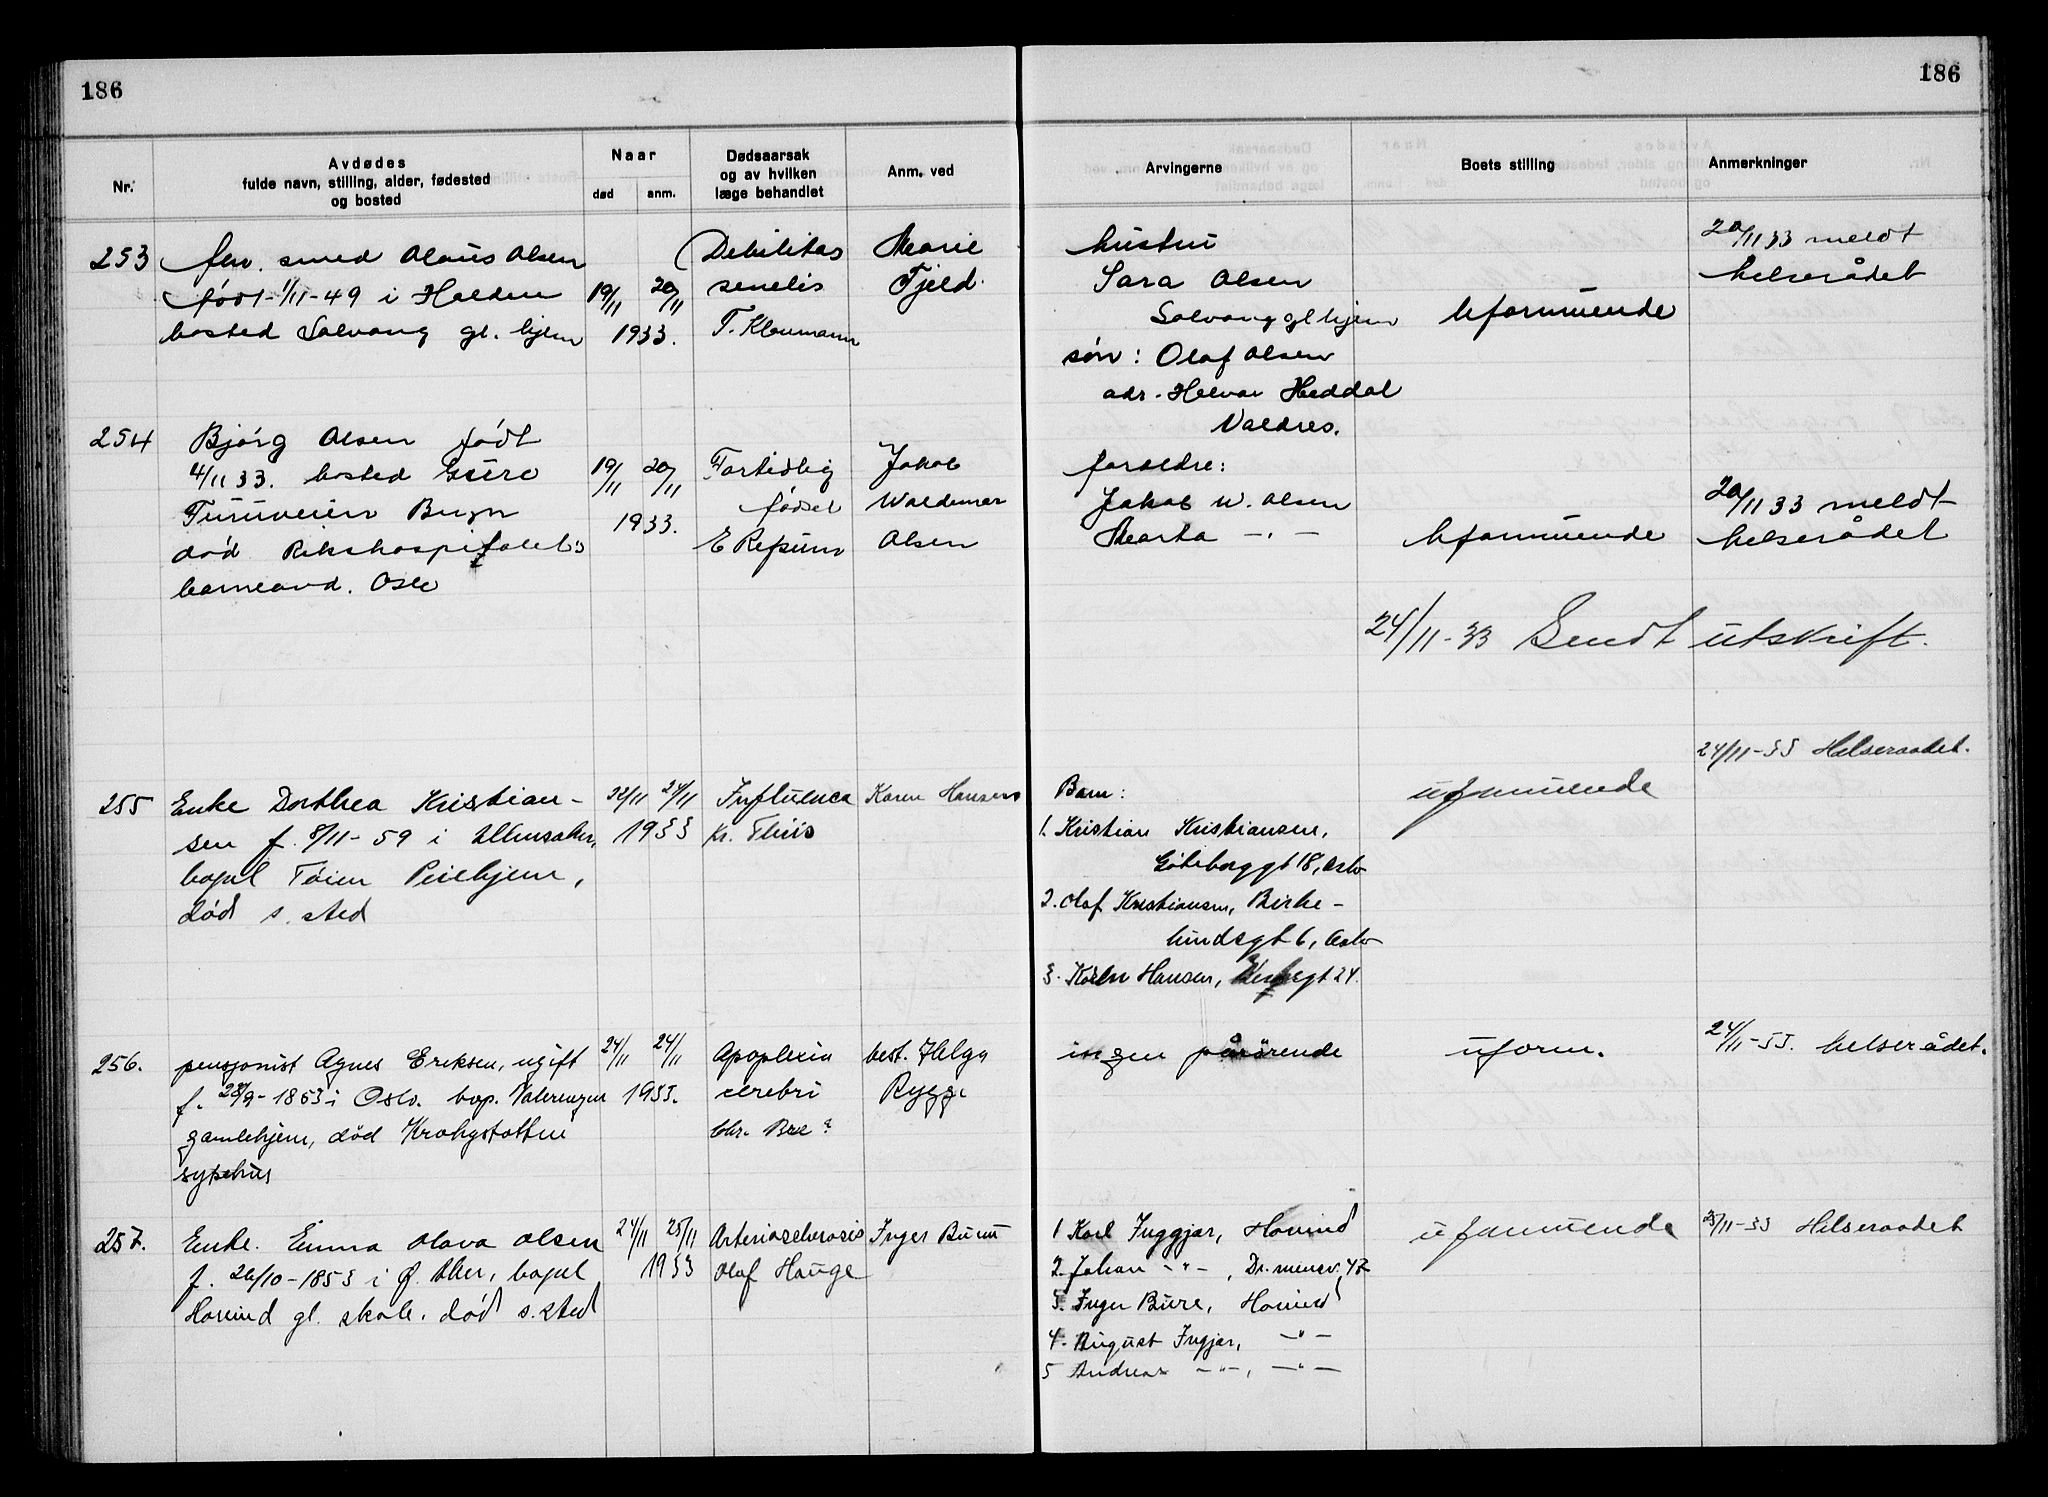 186
186
Nr.
Avdødes
fulde navn, stilling, alder, fødested
og bosted
Naar
død
anm.
Dødsaarsak
og av hvilken
læge behandlet
Anm. ved
Arvingerne
Boets stilling
Anmerkninger
253
smed Olaus Olsen
født 1/11-49 i Halden
bosted Solvang gl. hjem
19/11 20/11
1933.
Debilitas
senelis
T. Klaumann
Marie
Fjeld.
hustru
Sara Olsen
Solvang gl hjem
søn: Olaf Olsen
adr. Heddal
Valdres.
Uformuende
20/11 33 meldt
helserådet
254
Bjørg Olsen født
4/11 33. bosted
Furuveien Bryn
død Rikshospitalets
barneavd. Oslo
19/11 20/11
1933.
Fortidlig
fødsel
E Refsum
Jakob
Waldemar
Olsen
foreldre:
Jakob W. Olsen
Marta -"-
Uformuende
20/11 33 meldt
helserådet
24/11-33 Sendt utskrift.
255
Enke Dorthea Kristian-
sen f. 8/11-59 i Ullensaker,
bopel Tøien Pleiehjem,
død s. sted
22/11 24/11
1933
Influenca
Kr. Thiis
Karen Hansen
Barn:
1. Kristian Kristiansen,
Göteborggt 18, Oslo
2. Olaf Kristiansen, Birke-
lundsgt 6, Oslo
3. Karen Hansen, 24.
uformuende
24/11-33 Helseraadet.
256.
pensjonist Agnes Eriksen, ugift
f. 28/9-1853 i Oslo. bop. Vålerengen
gamlehjem, død Krohgstøtten
sykehus
24/11 24/11
1933.
Apoplexia
cerebri
Chr. Bre ?
best. Helga
Rygg.
ingen pårörende
uform.
24/11-33. helserådet.
257.
Enke. Emma Olava Olsen
f. 26/10-1853 i Ø. Aker, bopel
Hovind gl. skole. død s. sted
24/11 25/11
1933
Arteriosclerosis
Olaf Hauge
Inger Burum
1 Karl Inggjær, Hovind
2. Johan -"-, 47
3. Inger Hovind
4. August Ingjær, -"-
5 Andreas -"-, -"-
uformuende
25/11-33 Helseraadet